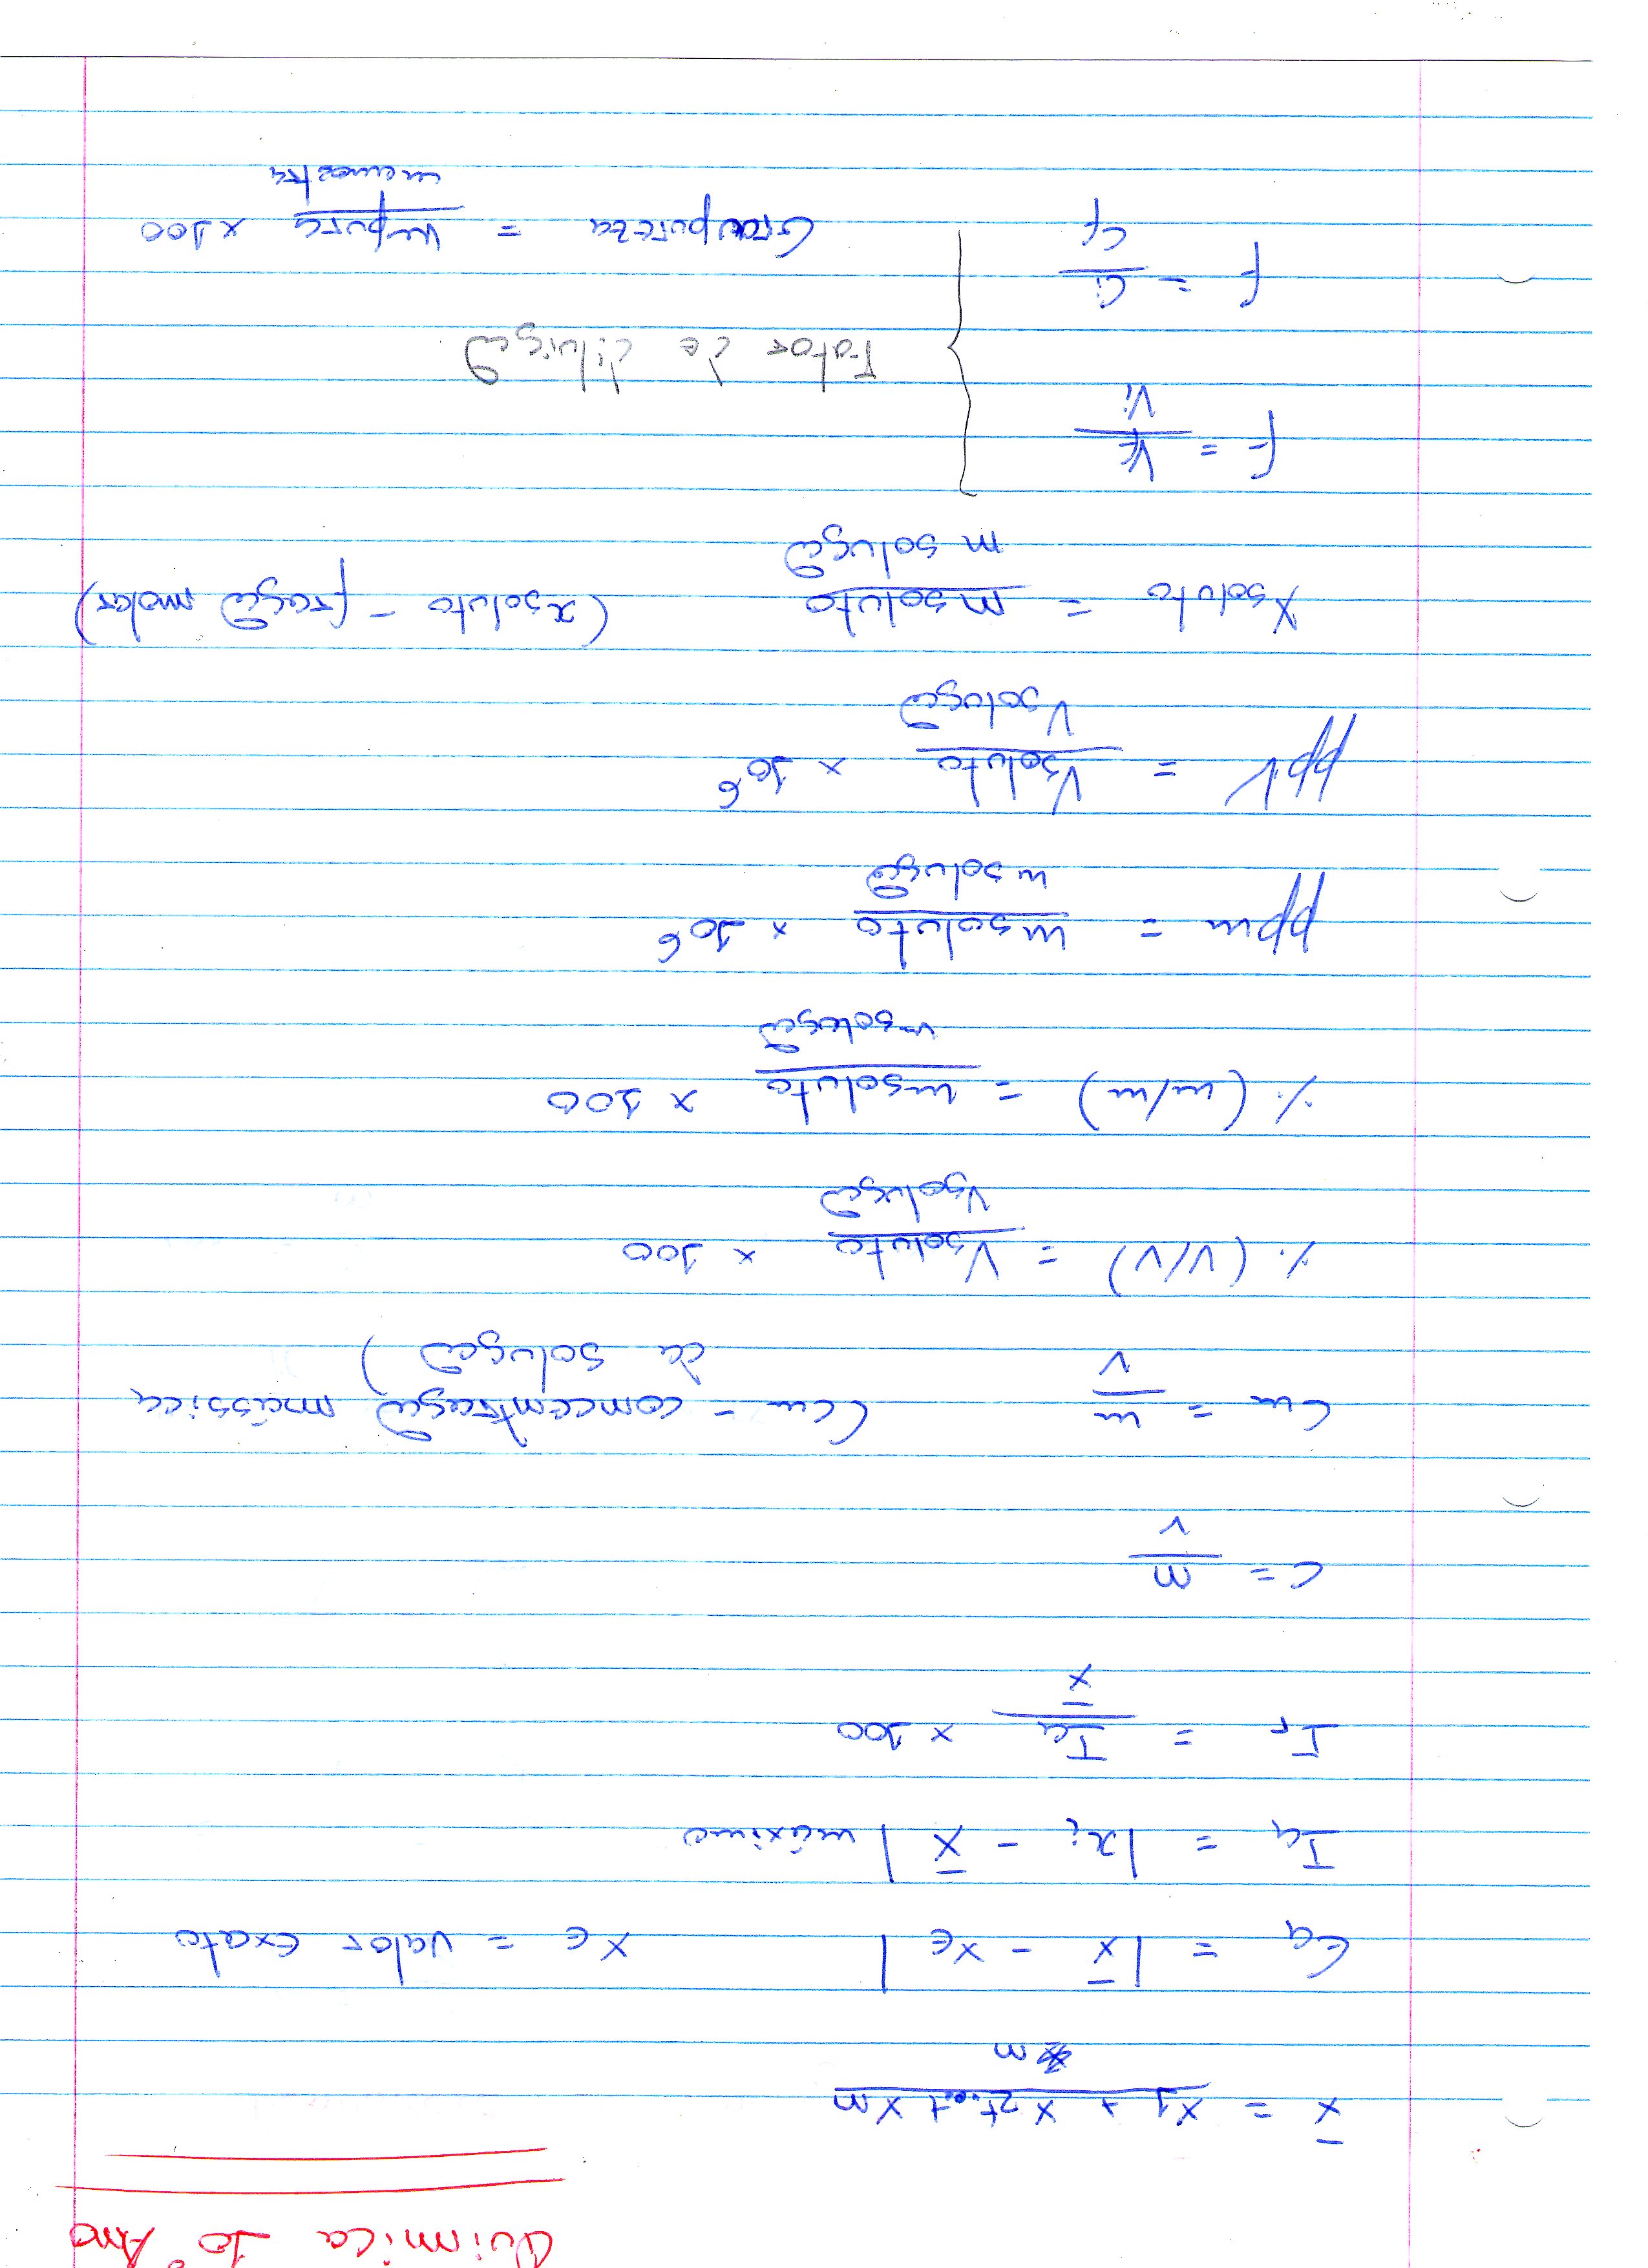 Química 10º Ano
x̄ = (x1 + x2+...+ xn) / n
Ea = |x̄ - xe| xe = valor exato
Ia = |xi - x̄| máximo
Ir = Ia / x̄ × 100
c = n / v
Cm = m / v (cm = concentração mássica
da solução)
% (V/V) = Vsoluto / Vsolução × 100
% (m/m) = msoluto / msolução × 100
ppm = msoluto / msolução × 10⁶
ppV = Vsoluto / Vsolução × 10⁶
Xsoluto = nsoluto / nsolução (xsoluto - fração molar)
f = Vf / Vi
Fator de diluição
f = Ci / Cf
Grau pureza = mpura / mamostra × 100